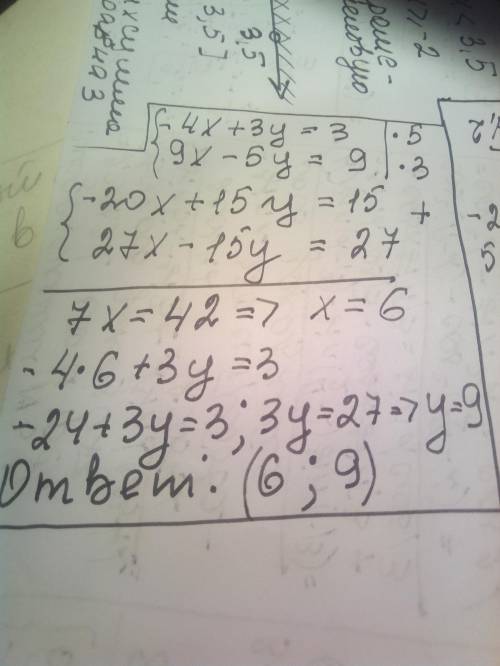 -4x+3y=3 | ·5
9x-5y=9 | ·3
{-20x+15y=15 +
27x-15y=27
7x=42=> x=6
-4·6+3y=3
-24+3y=3; 3y=27=>y=9
Ответ: (6; 9)
3,5
3,5]
-2